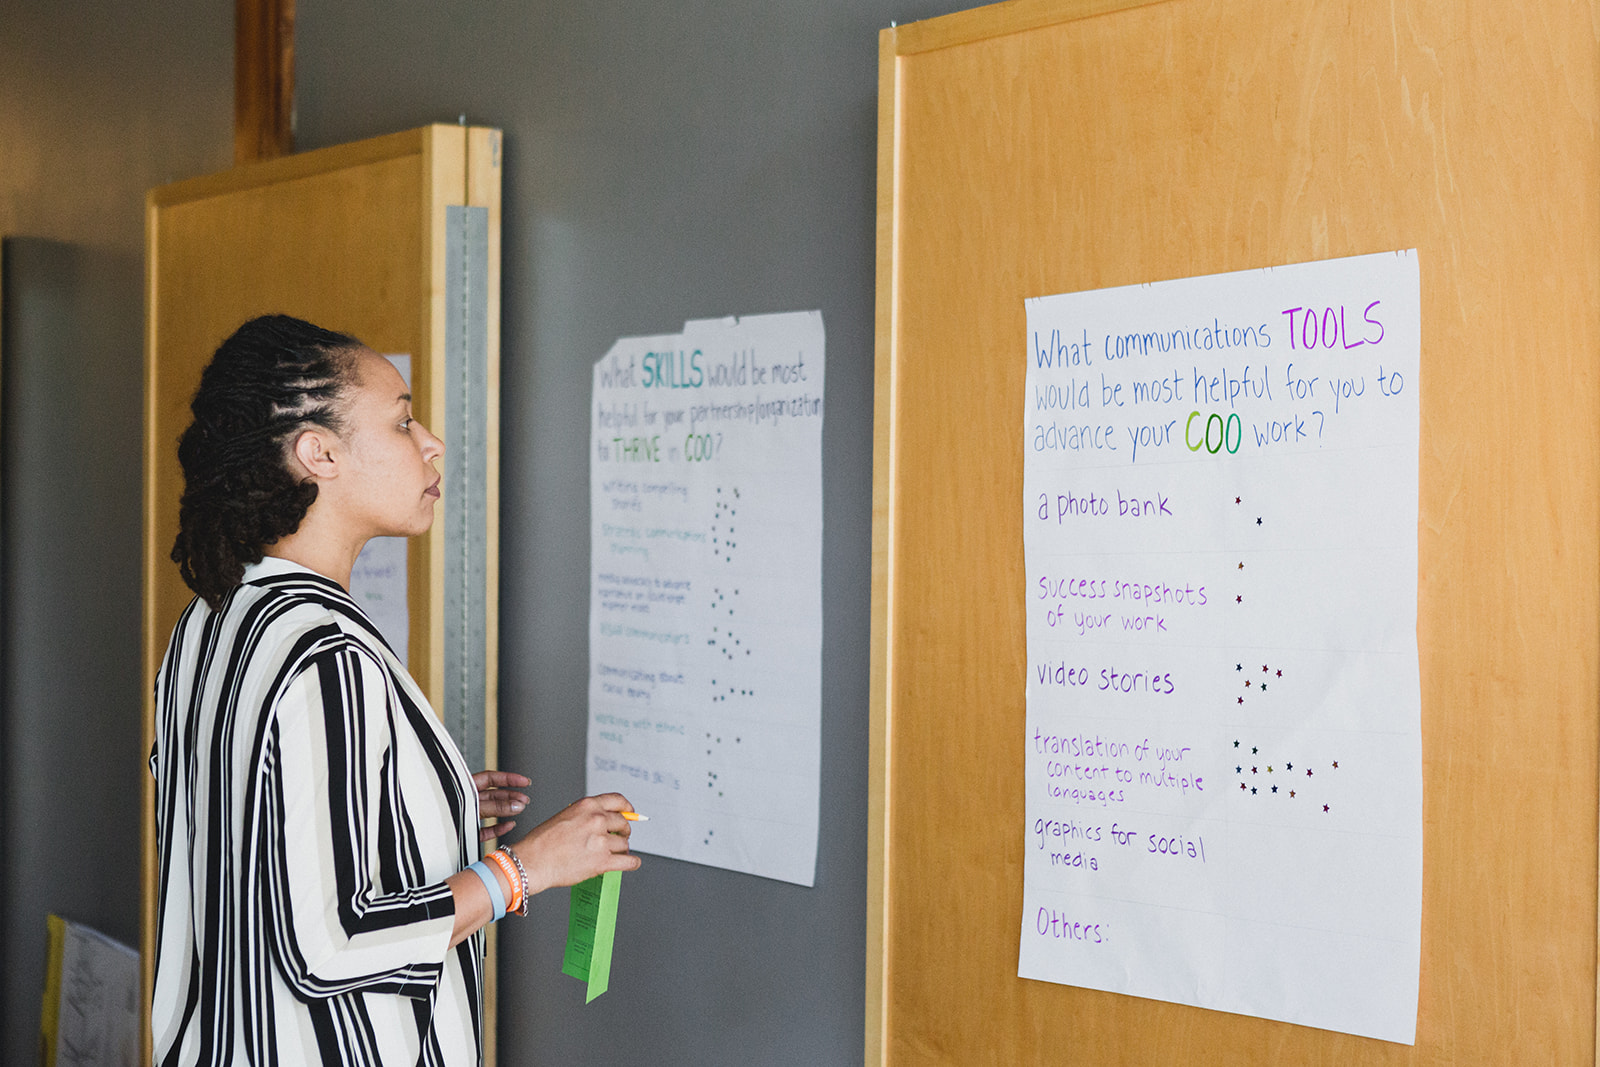 What SKILLS would be most
helpful for your partnership/organization
to THRIVE in COO?
writing compelling
stories
strategic communications
planning
visual communications
communicating about
working with ethnic
media
social media skills
What communications TOOLS
would be most helpful for you to
advance your COO work?
a photo bank
success snapshots
of your work
video stories
translation of your
content to multiple
languages
graphics for social
media
Others: